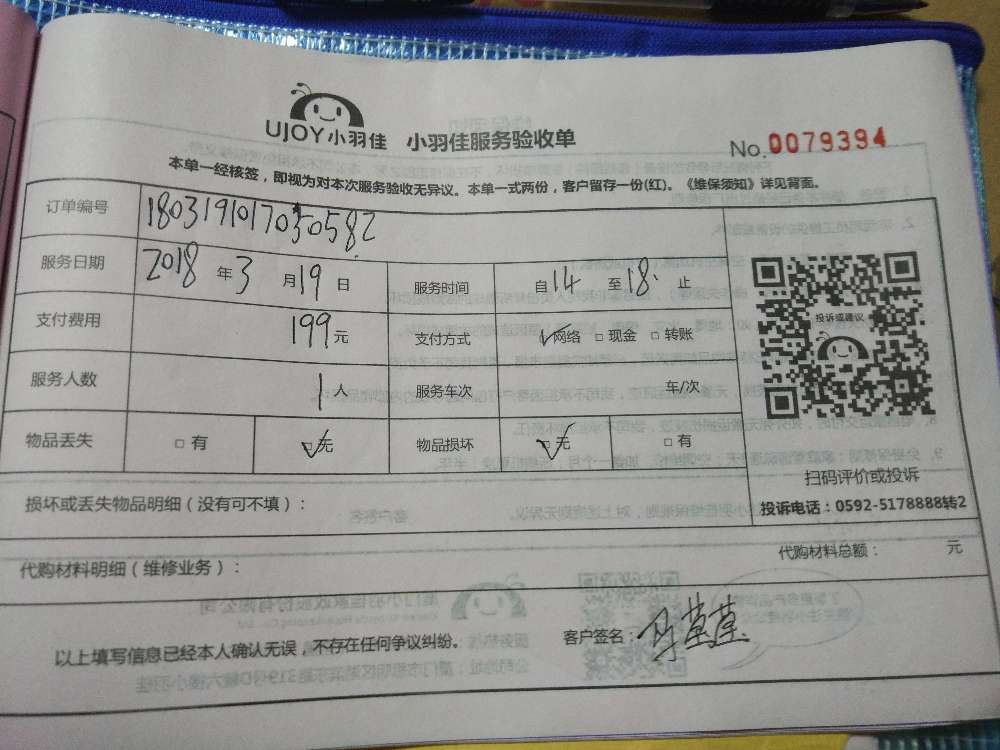 UJOY小羽佳 小羽佳服务验收单
No.0079394
本单一经核签，即视为对本次服务验收无异议。本单一式两份，客户留存一份(红)。《维保须知》详见背面。
订单编号 180319101703 0582
服务日期 2018年3月19日 服务时间 自14至18.止
支付费用 199元 支付方式 ☑网络 □现金 □转账
服务人数 1人 服务车次 车/次
物品丢失 □有 ☑无 物品损坏 ☑无 □有
投诉或建议
扫码评价或投诉
投诉电话：0592-5178888转2
损坏或丢失物品明细（没有可不填）：
代购材料明细（维修业务）： 代购材料总额： 元
以上填写信息已经本人确认无误，不存在任何争议纠纷。 客户签名：